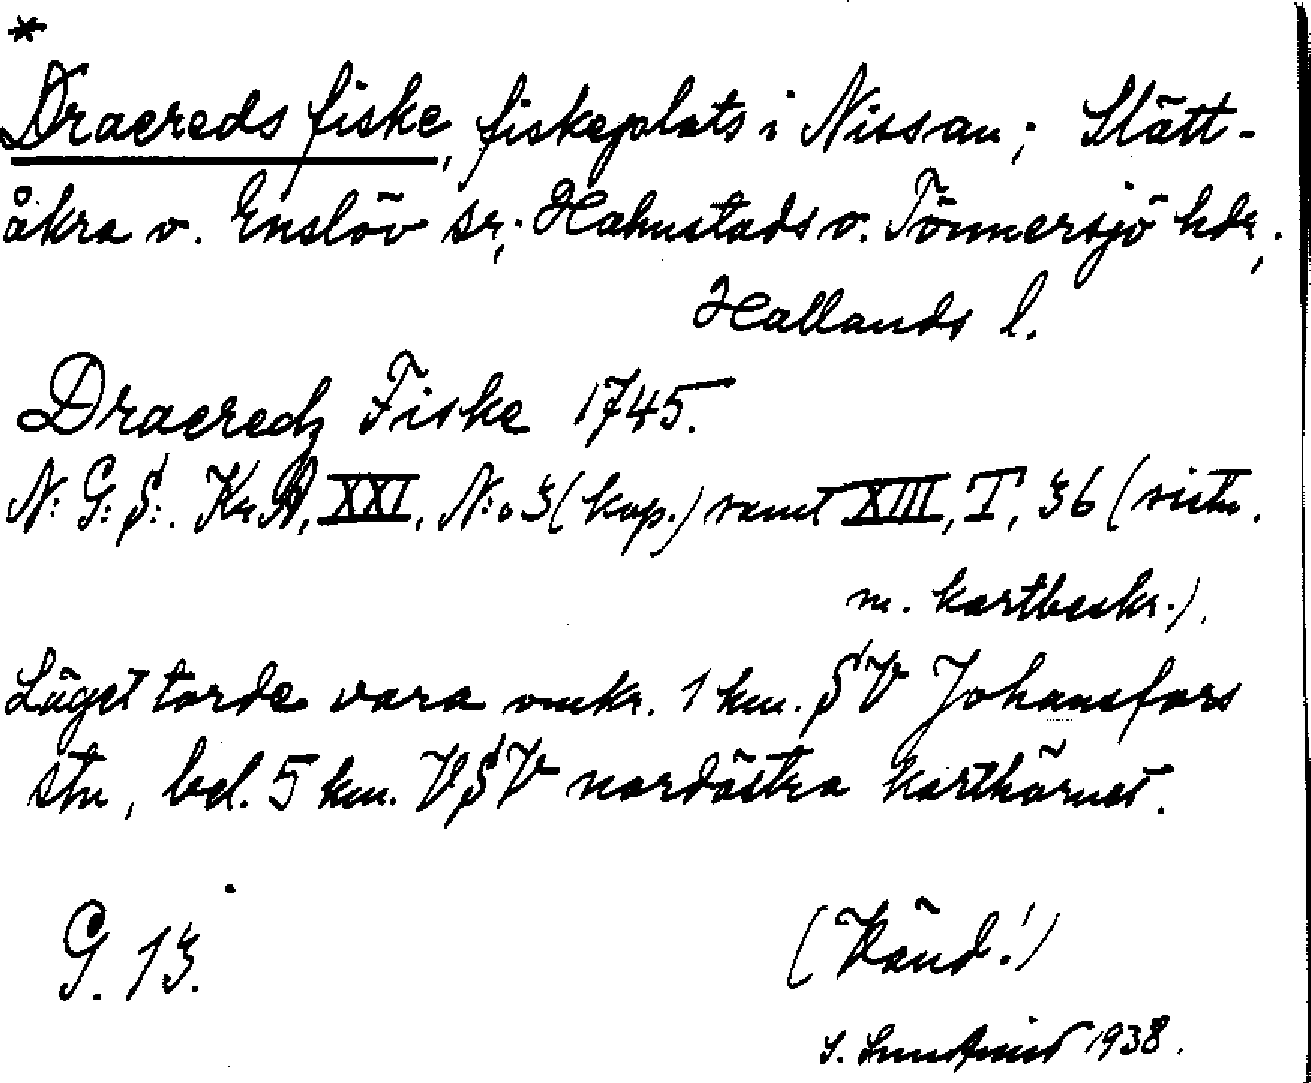 *
Dracreds fiske, fiskeplats i Nissan; Slätt-
åkra o. Enslöv sr; Halmstads o. Tönnersjö hdr;
Hallands l.
Dracredz Fiske 1745.
N: G: S:. Kr.A, XXI, N:o 3 (kop.) samt XIII, I, 36 (
m. kartbeskr.).
Läget torde vara omkr. 1 km. SV Johansfors
stn, bel. 5 km. VSV nordöstra karthörnet.
G. 13.
(Vänd!)
1938.